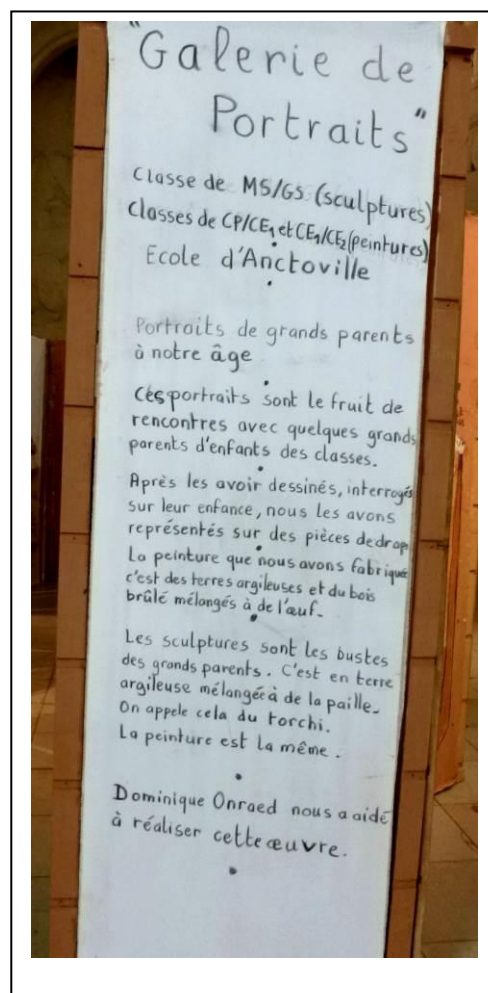 "Galerie de
Portraits"
Classe de MS/GS (sculptures)
Classes de CP/CE1 et CE1/CE2 (peintures)
Ecole d'Anctoville
Portraits de grands parents
à notre âge
Ces portraits sont le fruit de
rencontres avec quelques grands
parents d'enfants des classes.
Après les avoir dessinés, interrogés
sur leur enfance, nous les avons
représentés sur des pièces de drap.
La peinture que nous avons fabriquée
c'est des terres argileuses et du bois
brûlé mélangés à de l'œuf.
Les sculptures sont les bustes
des grands parents. C'est en terre
argileuse mélangée à de la paille.
On appele cela du torchi.
La peinture est la même.
Dominique Onraed nous a aidé
à réaliser cette œuvre.